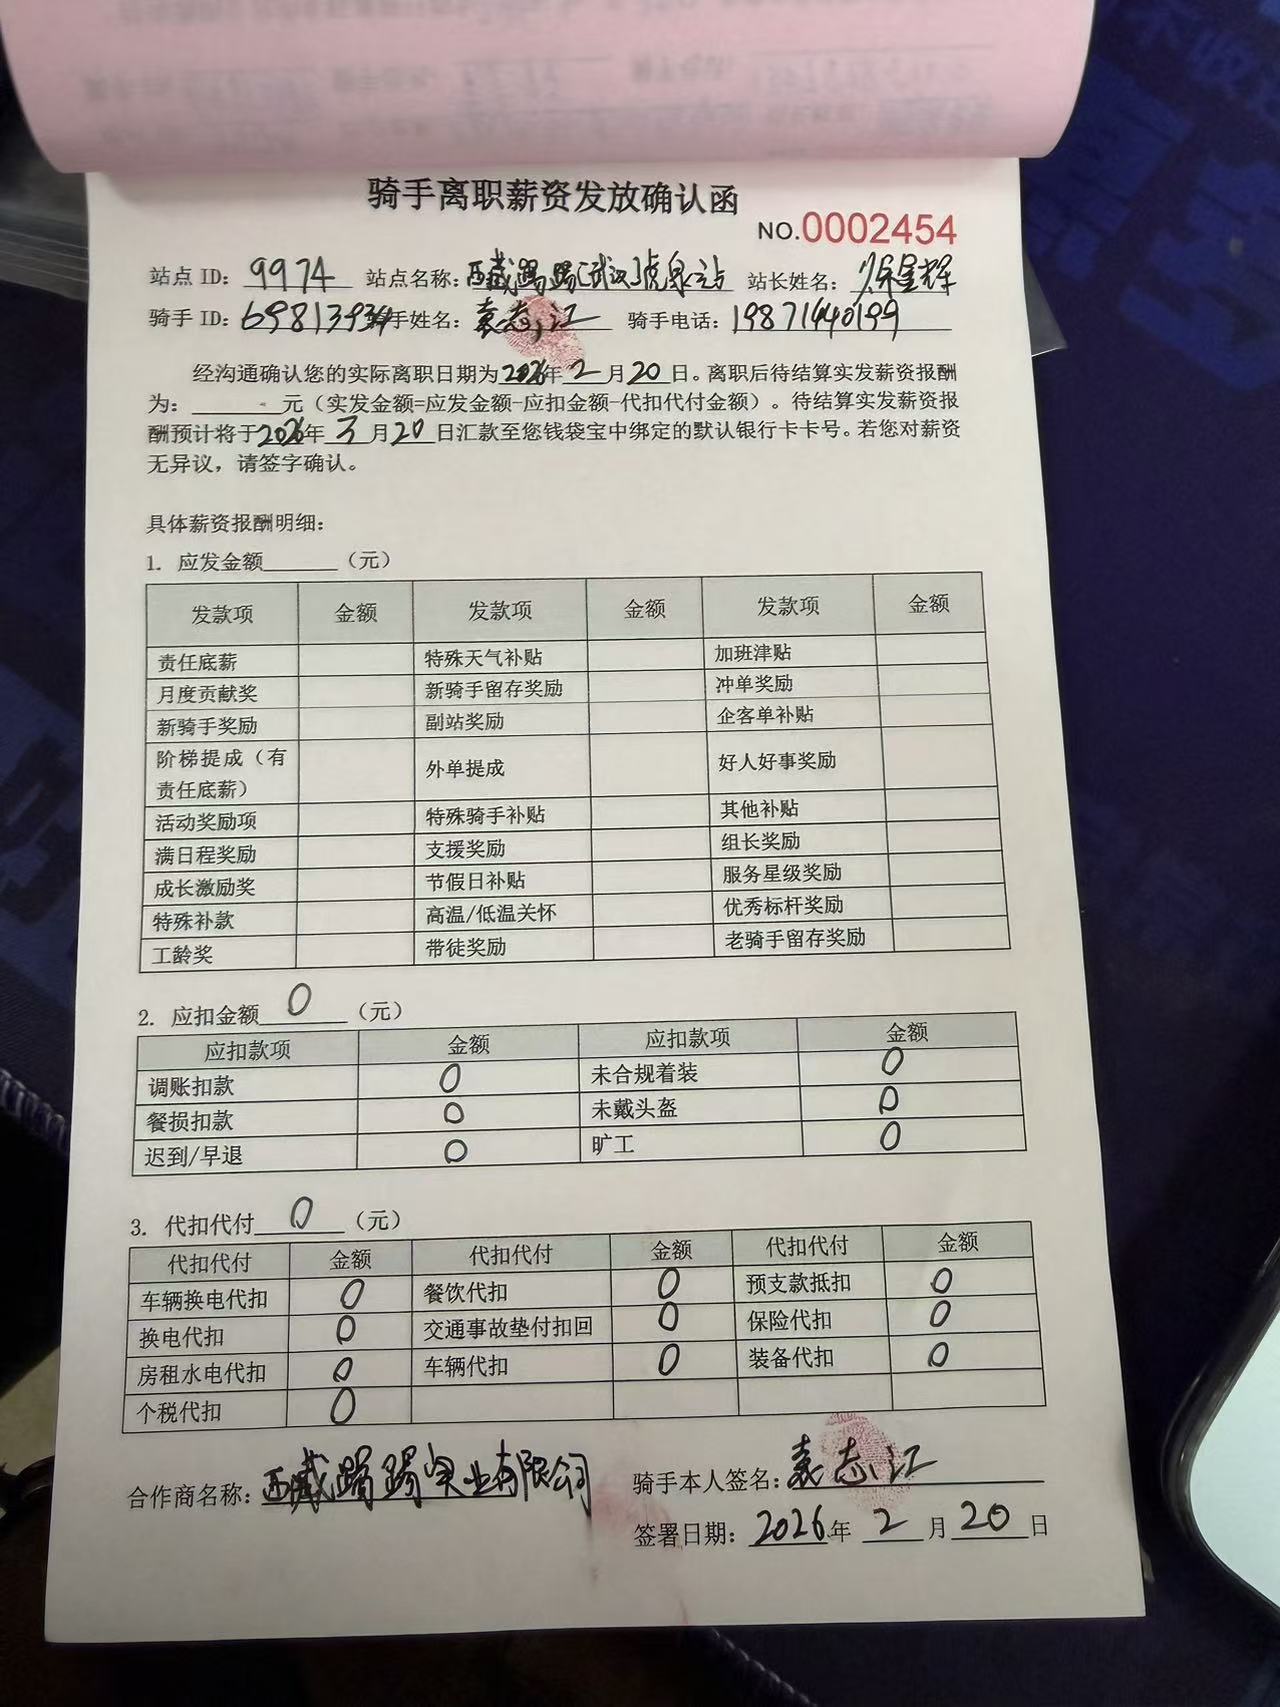 骑手离职薪资发放确认函
NO.0002454
站点 ID: 9974 站点名称: 西藏踢踢(武汉)虎泉站 站长姓名: 星辉
骑手 ID: 69813934 骑手姓名: 袁志江 骑手电话: 19871440199
经沟通确认您的实际离职日期为2026年2月20日。离职后待结算实发薪资报酬
为: 元（实发金额=应发金额-应扣金额-代扣代付金额）。待结算实发薪资报
酬预计将于2026年3月20日汇款至您钱袋宝中绑定的默认银行卡卡号。若您对薪资
无异议，请签字确认。
具体薪资报酬明细:
1. 应发金额（元）
发款项 金额 发款项 金额 发款项 金额
责任底薪 特殊天气补贴 加班津贴
月度贡献奖 新骑手留存奖励 冲单奖励
新骑手奖励 副站奖励 企客单补贴
阶梯提成（有
责任底薪） 外单提成 好人好事奖励
活动奖励项 特殊骑手补贴 其他补贴
满日程奖励 支援奖励 组长奖励
成长激励奖 节假日补贴 服务星级奖励
特殊补款 高温/低温关怀 优秀标杆奖励
工龄奖 带徒奖励 老骑手留存奖励
2. 应扣金额 0（元）
应扣款项 金额 应扣款项 金额
调账扣款 0 未合规着装 0
餐损扣款 0 未戴头盔 0
迟到/早退 0 旷工 0
3. 代扣代付 0（元）
代扣代付 金额 代扣代付 金额 代扣代付 金额
车辆换电代扣 0 餐饮代扣 0 预支款抵扣 0
换电代扣 0 交通事故垫付扣回 0 保险代扣 0
房租水电代扣 0 车辆代扣 0 装备代扣 0
个税代扣 0
合作商名称: 西藏踢踢实业有限公司 骑手本人签名: 袁志江
签署日期: 2026年2月20日